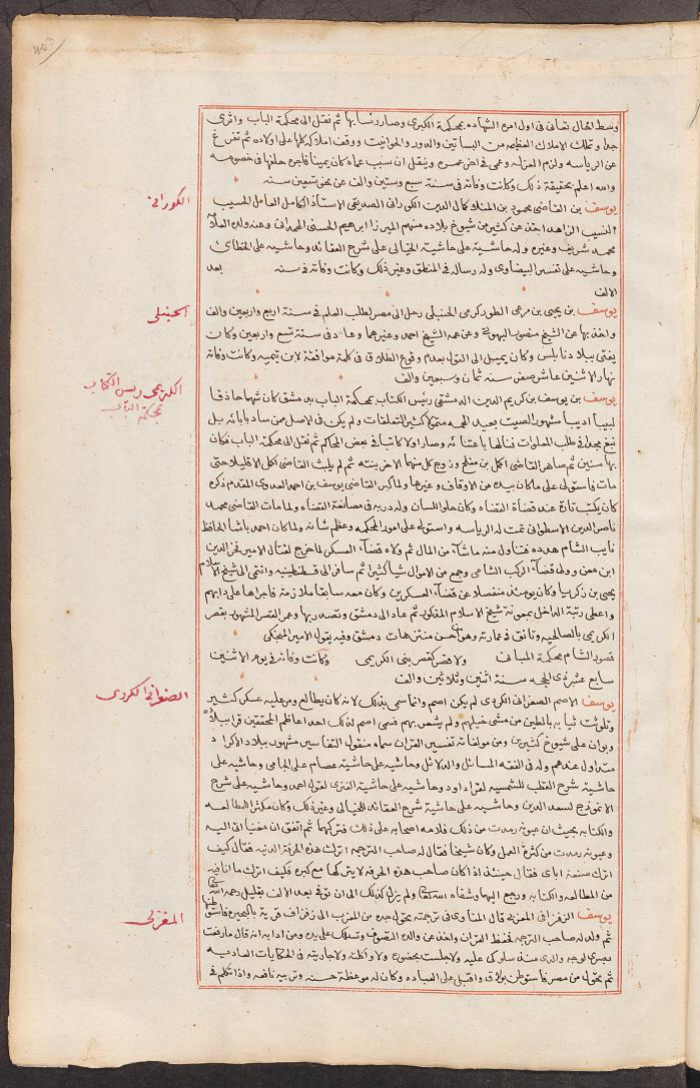 403
وسط الحال تعانى فى اول امره الشهاده بمحكمة الكبرى وصار رئيسا بها ثم نقل الى محكمة الباب واثرى
جدا وتملك الاملاك العظيمه من البساتين والدور والحوانيت ووقف املاكه كلها على اولاده ثم تفرغ
عن الرياسه ولزم العزله وعمى فى اخر عمره وينقل ان سبب عماه كان يمينا فاجره حلفها فى خصومه
والله اعلم بحقيقة ذلك وكانت وفاته فى سنة سبع وستين والف عن نحو تسعين سنه
الكورانى
يوسف بن القاضى محمود بن المنلا كمال الدين الكورانى الصديقى الاستاذ الكامل العامل الحسيب
النسيب الزاهد اخذ عن كثير من شيوخ بلاده منهم الميرزا ابراهيم الحسنى الهمدانى وعنه ولده العلامه
محمد شريف وغيره وله حاشية على حاشية الخيالى على شرح العقائد وحاشيه على الخطائى
وحاشيه على تفسير البيضاوى وله رساله فى المنطق وغير ذلك وكانت وفاته فى سنه بعد
الالف
الحنبلى
يوسف بن يحيى بن مرعى الطور كرمى الحنبلى رحل الى مصر لطلب العلم فى سنة اربع واربعين والف
واخذ بها عن الشيخ منصور البهوتى وعن عمه الشيخ احمد وغيرهما وعاد فى سنة تسع واربعين وكان
يفتى ببلاد نابلس وكان يميل الى القول بعدم وقوع الطلاق فى كلمة موافقة لابن تيميه وكانت وفاته
نهار الاثنين عاشر صفر سنه ثمان وسبعين والف
الكريمى رئيس الكتاب
بمحكمة الباب
يوسف بن يوسف بن كريم الدين الدمشقى رئيس الكتاب بمحكمة الباب بدمشق كان شهما حاذقا
لبيبا اديبا مشهور الصيت بعيد الهمه متمولا كثير المتعلقات ولم يكن فى الاصل من ساد بابائه بل
نبغ مجدا فى طلب المعلوات فنالها باعتنائه وصار اولا كاتبا فى بعض المحاكم ثم نقل الى محكمة الباب فكان
بها سنين ثم صاهر القاضى اكمل بن مفلح وزوج كل منهما الاخر بنته ثم لم يلبث القاضى اكمل الا قليلا حتى
مات فاستولى على ما كان بيده من الاوقاف وغيرها ولما كبر القاضى يوسف بن احمد العدوى المقدم ذكره
كان يكتب تارة عند قضاة القضاء وكان حلو اللسان وله دربه فى مصانعة القضاة ولما مات القاضى محمد
ناصر الدين الاسطوانى تمت له الرياسه واستولى على امور المحكمه وعظم شانه ولما كان احمد باشا الحافظ
نايب الشام هدده فتناول منه ما شاء من المال ثم ولاه قضاء العسكر لما خرج لقتال الامير فخر الدين
ابن معن وولى قضاء الركب الشامى وجمع من الاموال شيا كثيرا ثم سافر الى قسطنطينيه وانتمى الى شيخ الاسلام
يحيى بن زكريا وكان يومئذ منفصلا عن قضاء العسكرين وكان معه سابقا ملازمة فاجراها على دابهم
واعطى رتبة الداخل بمعونة شيخ الاسلام المذكور ثم عاد الى دمشق وتصدر بها وعمر القصر المشهور بقصر
الكريمى بالصالحيه وتانق فى عمارته وهو احسن منتزهات دمشق وفيه يقول الامير المنجكى
قصور الشام محكمة المبانى ولا قصر كقصر بنى الكريمى وكانت وفاته فى يوم الاثنين
سابع عشر ذى الحجه سنة اثنين وثلاثين والف
الصفرانى الكردى
يوسف الاصم الصفرانى الكردى لم يكن اصم وانما سمى بذلك لانه كان يطالع ومر عليه عسكر كثير
وتلوثت ثيابه بالطين من مشى خيلهم ولم يشعر بهم فسمى اصم لذلك احد اعاظم المحققين قرا ببلاده
وبوان على شيوخ كثيرين ومن مولفاته تفسير القران سماه منقول التفاسير مشهور ببلاد الاكراد
متداول عندهم وله فى الفقه المسائل والدلائل وحاشيه على حاشية عصام على الجامى وحاشيه على
حاشية شرح القطب للشمسيه لقراداود وحاشيه على حاشية الفنرى لقول احمد وحاشيه على شرح
الانموذج لسعد الدين وحاشيه على حاشية شرح العقائد للخيالى وغير ذلك وكان مكثر المطالعه
والكتابه بحيث ان عيونه رمدت من ذلك فلامه اصحابه على ذلك فتركهما ثم اتفق ان مغنيا اتى اليه
وعيونه رمدت من كثرة العمل وكان شيخا فقال له صاحب الترجمه اترك هذه الحرفة الدنيه فقال كيف
اترك صنعة اباى فقال حينئذ اذا كان صاحب هذه الحرفه لا يتركها مع كبره فكيف اترك ما انا فيه
من المطالعه والكتابه ورجع اليهما وشفاه الله تعالى ولم يزل كذلك الى ان توفى بعد الالف بقليل رحمه الله تعالى
المغربى
يوسف الزفزافى المغربى قال المناوى فى ترجمته تحول جده من المغرب الى زفزاف قرية بالبحيره فاستوطنها
ثم ولد له صاحب الترجمه فحفظ القران واخذ عن والده التصوف وتسلك على يديه ومن ادابه انه قال ما رفعت
بصرى لوجه والدى منذ سلوكى عليه ولا جلست بحضوره ولا واكلته ولا جاريته فى الحكايات العاديه
ثم تحول من مصر فاستوطن بولاق واقبل على العباده وكان له موعظة حسنه وتربيه نافعه واذا تكلم فى